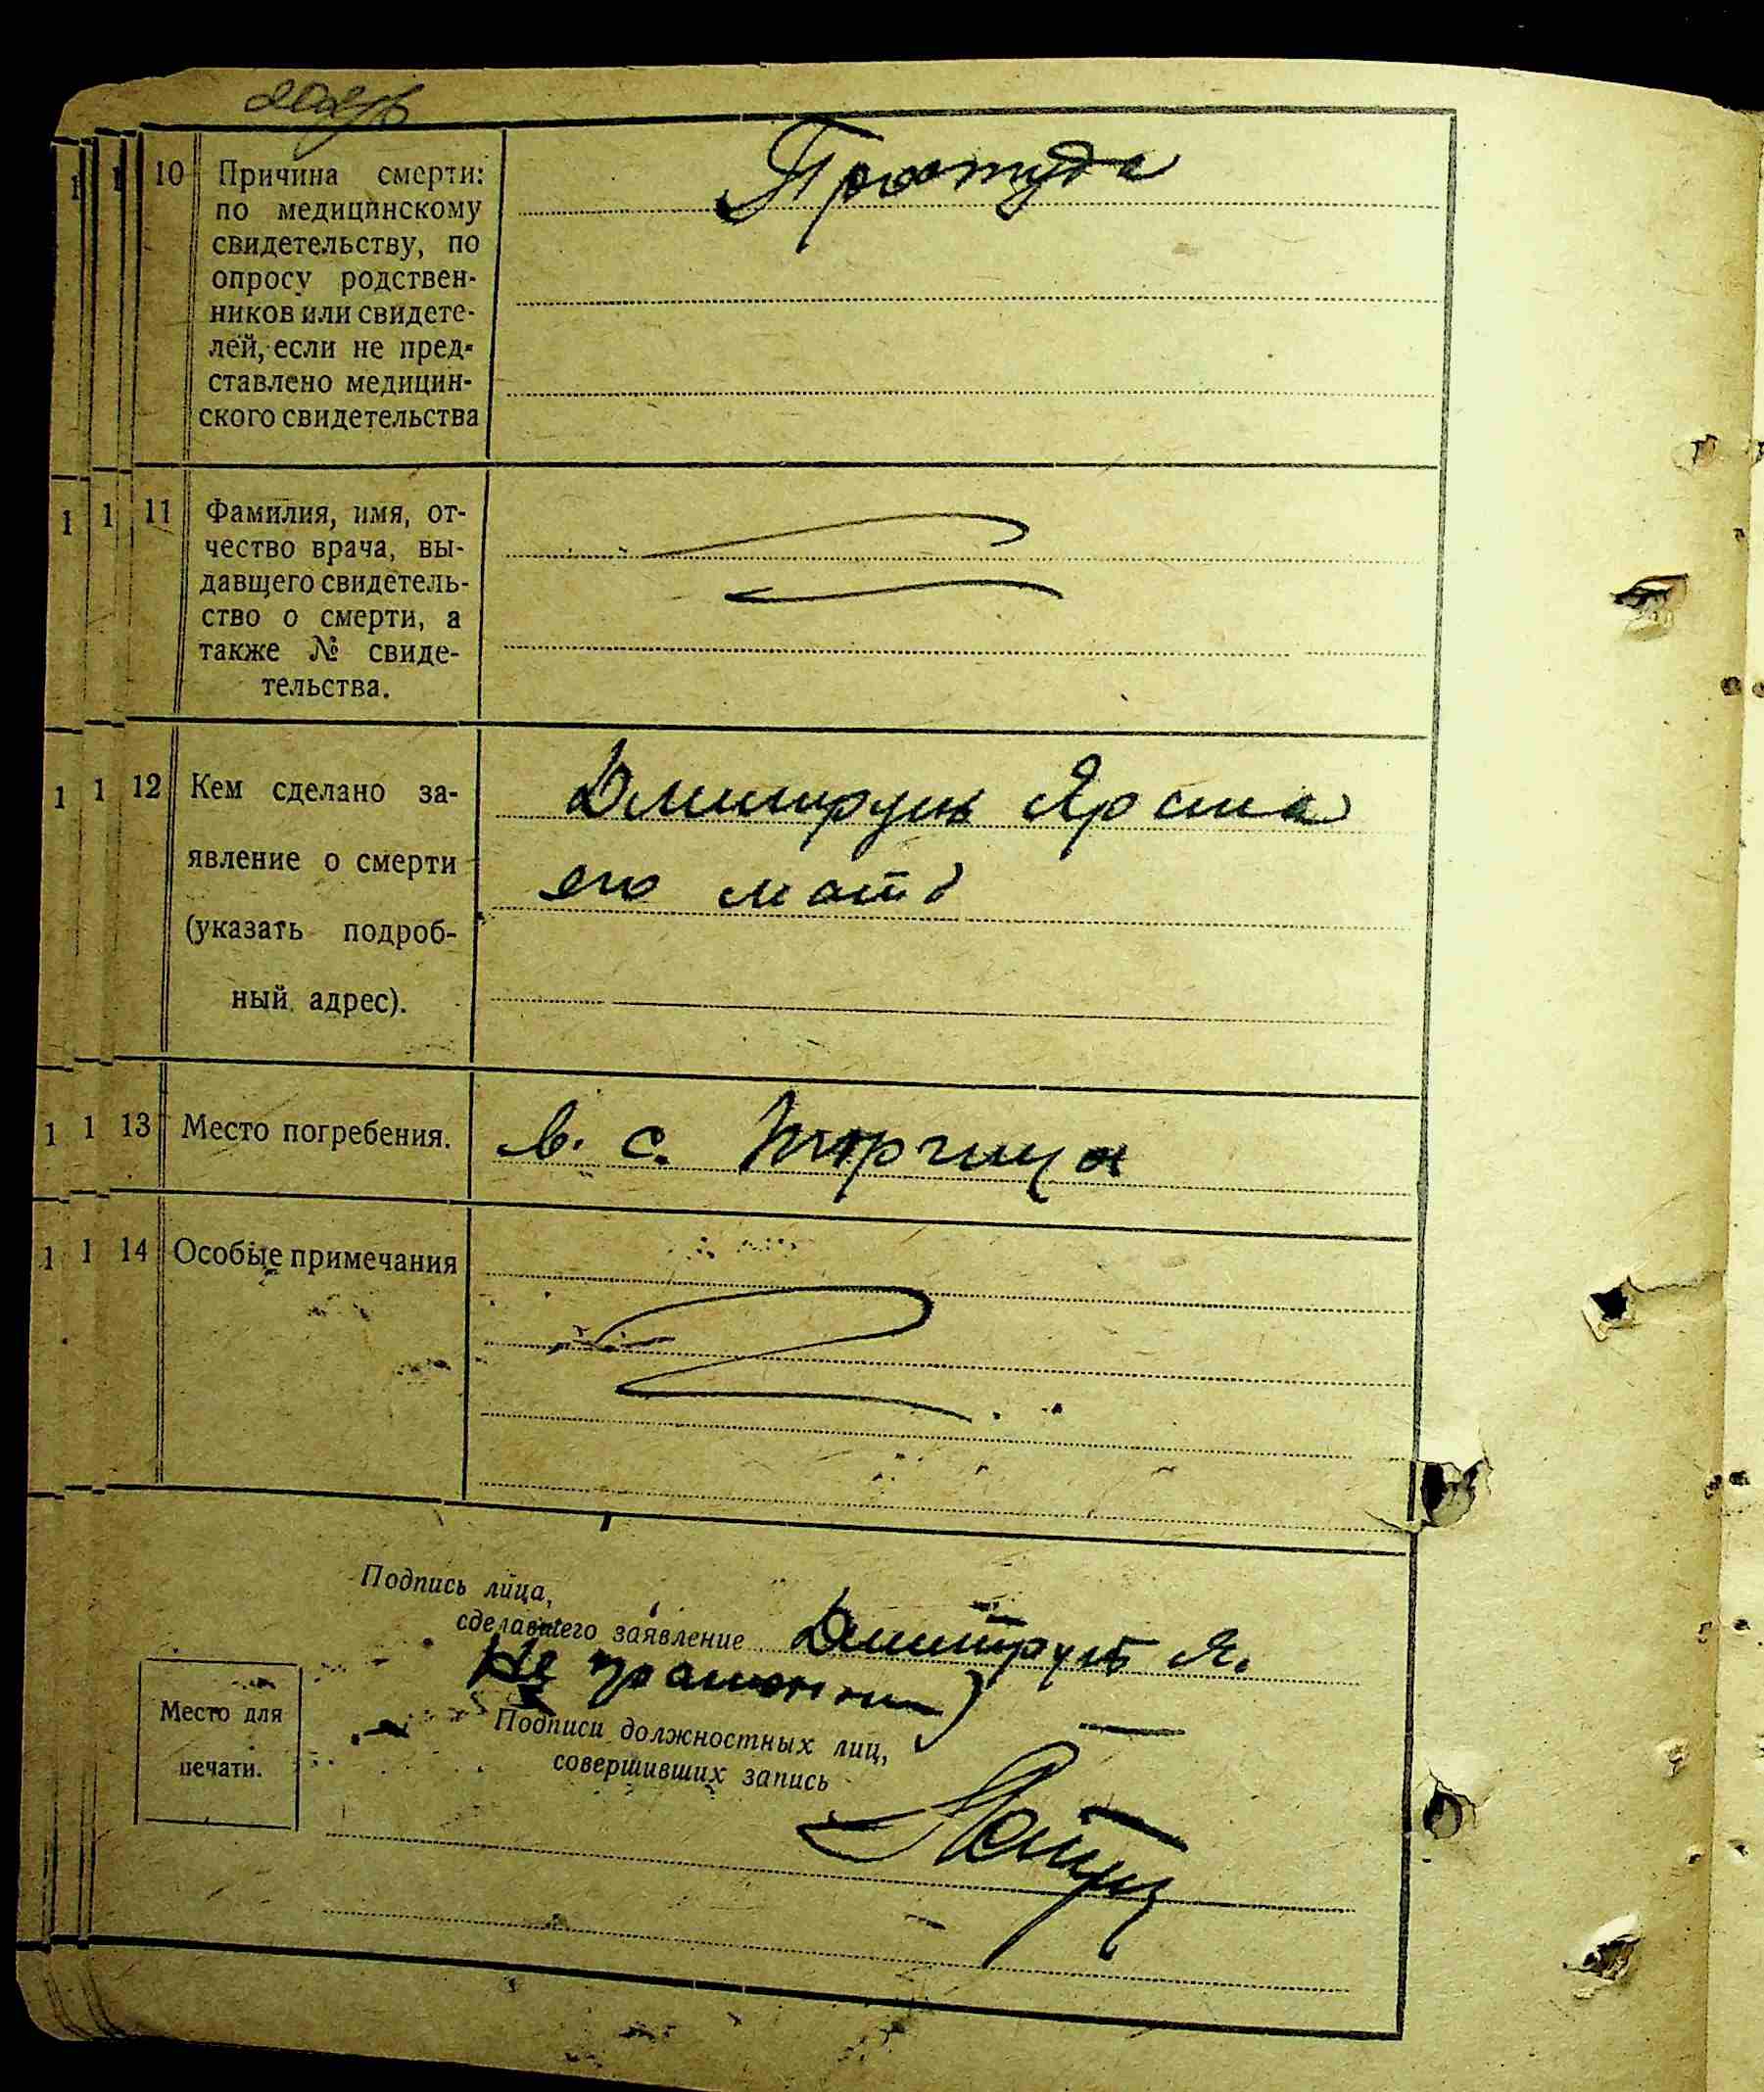 10 Причина смерти:
по медицинскому
свидетельству, по
опросу родствен-
ников или свидете-
лей, если не пред-
ставлено медицин-
ского свидетельства
Простуда
1 1 11 Фамилия, имя, от-
чество врача, вы-
давщего свидетель-
ство о смерти, а
также № свиде-
тельства.
1 1 12 Кем сделано за-
явление о смерти
(указать подроб-
ный адрес).
Дмитрук
его мать
1 1 13 Место погребения.
в. с. Торчица
1 1 14 Особые примечания
Подпись лица,
сделавшего заявление Дмитрук Я.
Не
Подписи должностных лиц,
совершивших запись
Место для
печати.